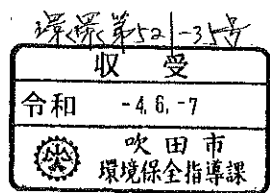 環環第521-35号
収受
令和 -4.6.-7
吹田市
環境保全指導課